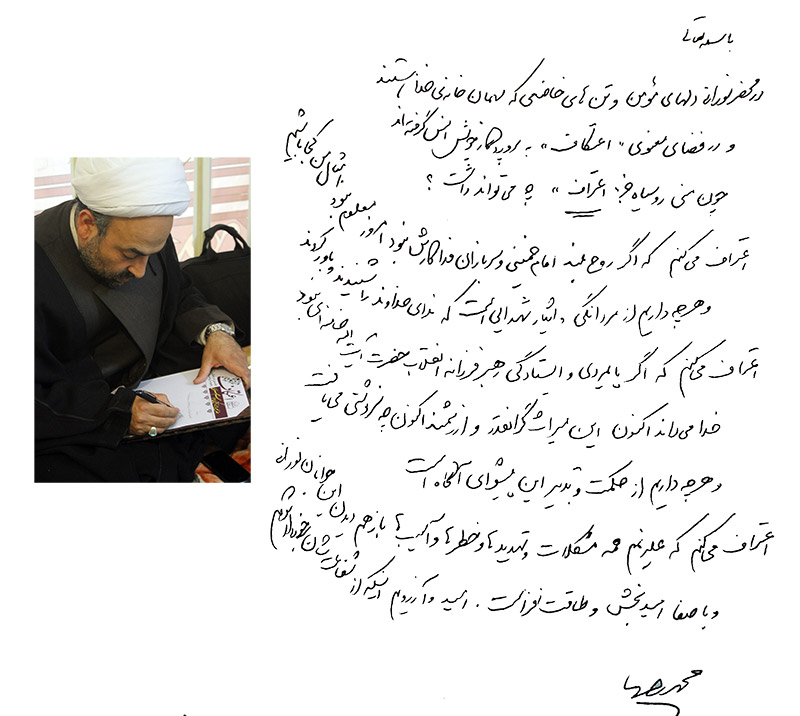 باسمه تعالی
در محضر نورانی دلهای مؤمن و تن های خاضعی که مهمان خانه‌ی خدا هستند
و در فضای معنوی « اعتکاف » به پروردگار خویش انس گرفته‌اند
چون منی روسیاه جز « اعتراف » چه می تواند داشت ؟
اعتراف می‌کنم که اگر روح بلند امام خمینی و سربازان فداکارش نبود امروز معلوم نبود امثال من کجا باشیم
و هرچه داریم از مردانگی و ایثار شهدایی است که ندای خداوند را شنیدند و باور کردند
اعتراف می‌کنم که اگر پایمردی و ایستادگی رهبر فرزانه انقلاب حضرت آیت الله خامنه‌ای نبود
خدا می‌داند اکنون این میراث گرانقدر و ارزشمند اکنون چه سرنوشتی می‌یافت
و هرچه داریم از حکمت و تدبیر این پیشوای آگاه است
اعتراف می‌کنم که علیرغم همه مشکلات و تهدیدها و خطرها و آسیب ها باز هم دیدن این جوانان نورانی
و با صفا امیدبخش و طاقت افزاست . امید و آرزویم اینکه از شفاعتشان برخوردار شوم